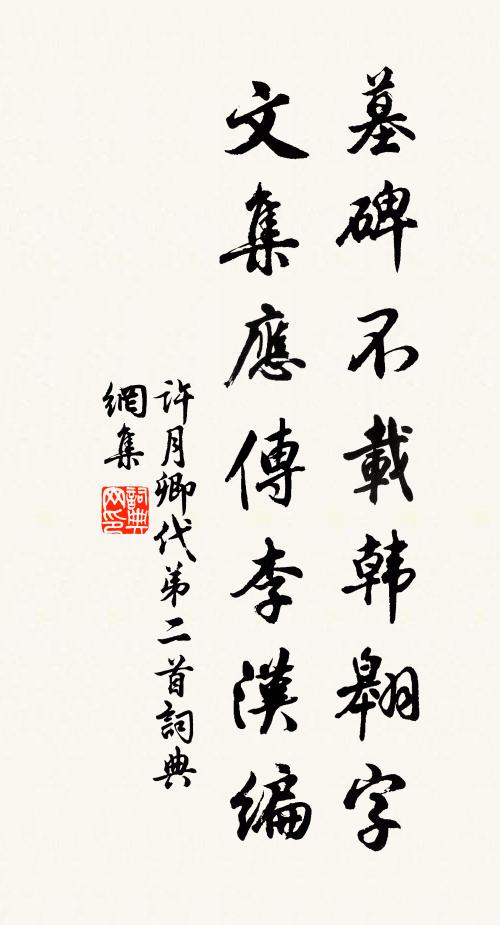 墓碑不載韩翱字
文集應傳李漢編
許月卿代弟二首詞典
網集
詞典网印